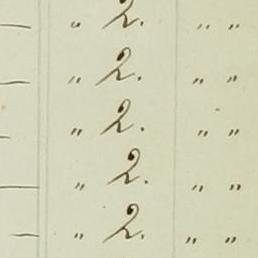 — " 2. " "
— " 2. " "
— " 2. " "
— " 2. " "
— " 2. " "